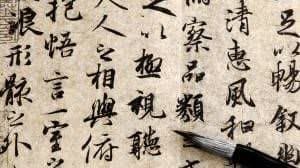 足以暢敘
清惠風和
察品類之
以極視聽
人之相與俯
抱悟言一室之
浪形骸之外